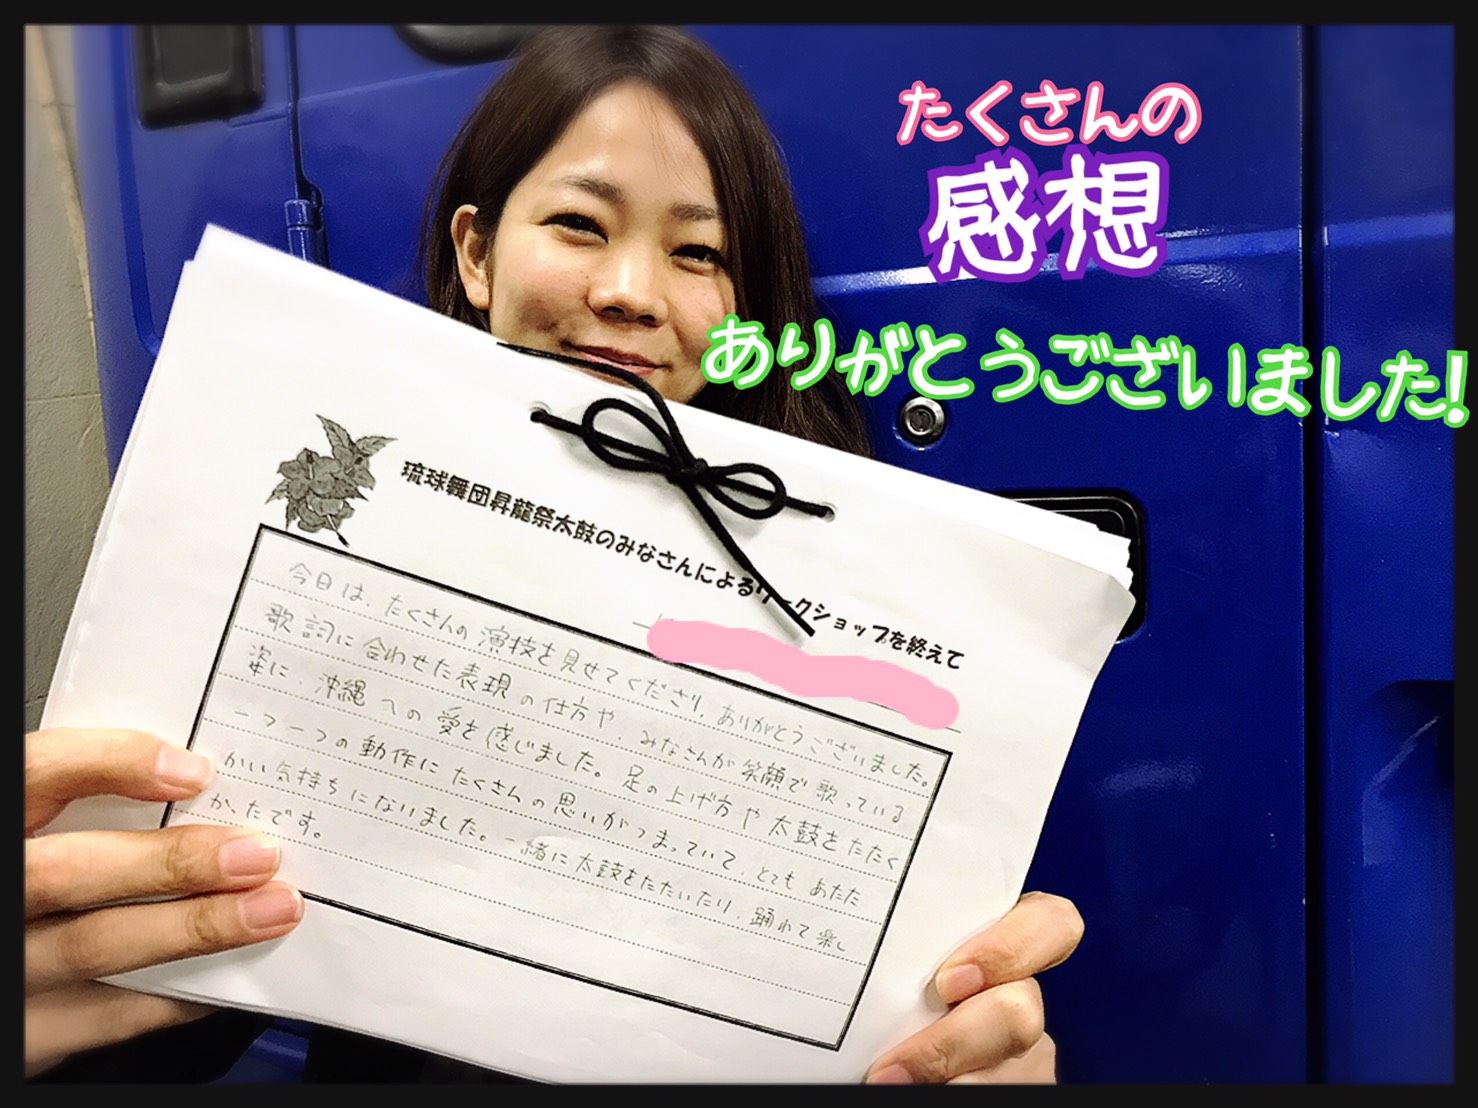 たくさんの
感想
ありがとうございました!
琉球舞団昇龍祭太鼓のみなさんによるワークショップを終えて
今日は、たくさんの演技を見せてくださり、ありがとうございました。
歌詞に合わせた表現の仕方や、みなさんが笑顔で歌っている
姿に、沖縄への愛を感じました。足の上げ方や太鼓をたたく
一つ一つの動作にたくさんの思いがつまっていて、とてもあたた
かい気持ちになりました。一緒に太鼓をたたいたり、踊れて楽し
かったです。